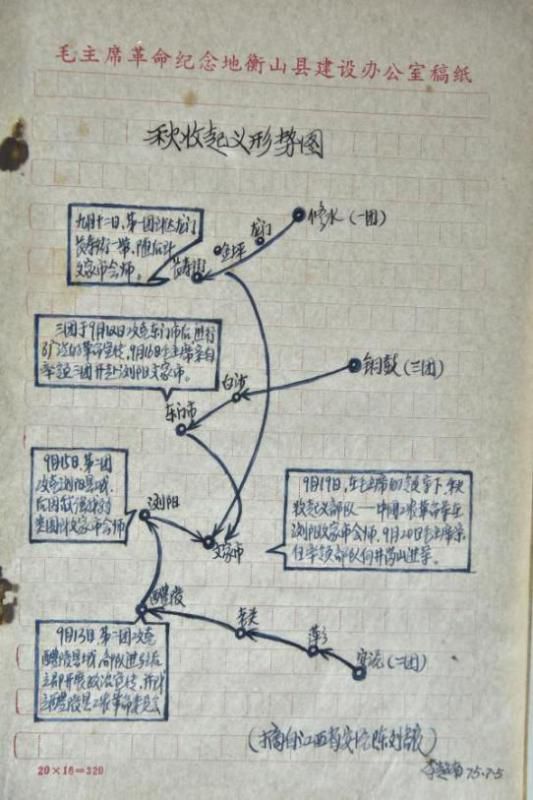 毛主席革命纪念地衡山县建设办公室稿纸
秋收起义形势图
修水（一团）
龙门
金坪
长寿街
九月十二日，第一团
长寿街一带，随后
文家市会师。
三团于9月12日攻克东门市后，进行
了广泛的革命宣传，9月16日毛主席亲自
率领三团开赴浏阳文家市。
铜鼓（三团）
白沙
东门市
9月15日，第二团
攻克浏阳县城，
文家市会师
浏阳
文家市
9月19日，在毛主席的领导下，秋
收起义部队——中国工农革命军在
浏阳文家市会师。9月20日毛主席亲
自率领部队向井冈山进军。
醴陵
老关
萍乡
安沅（二团）
9月13日，第二团攻克
醴陵县城，部队进城后
立即开展政治宣传，并成
立醴陵县工农革命委员会
（摘自江西省安沅陈列馆）
75.7.5
20×16=320